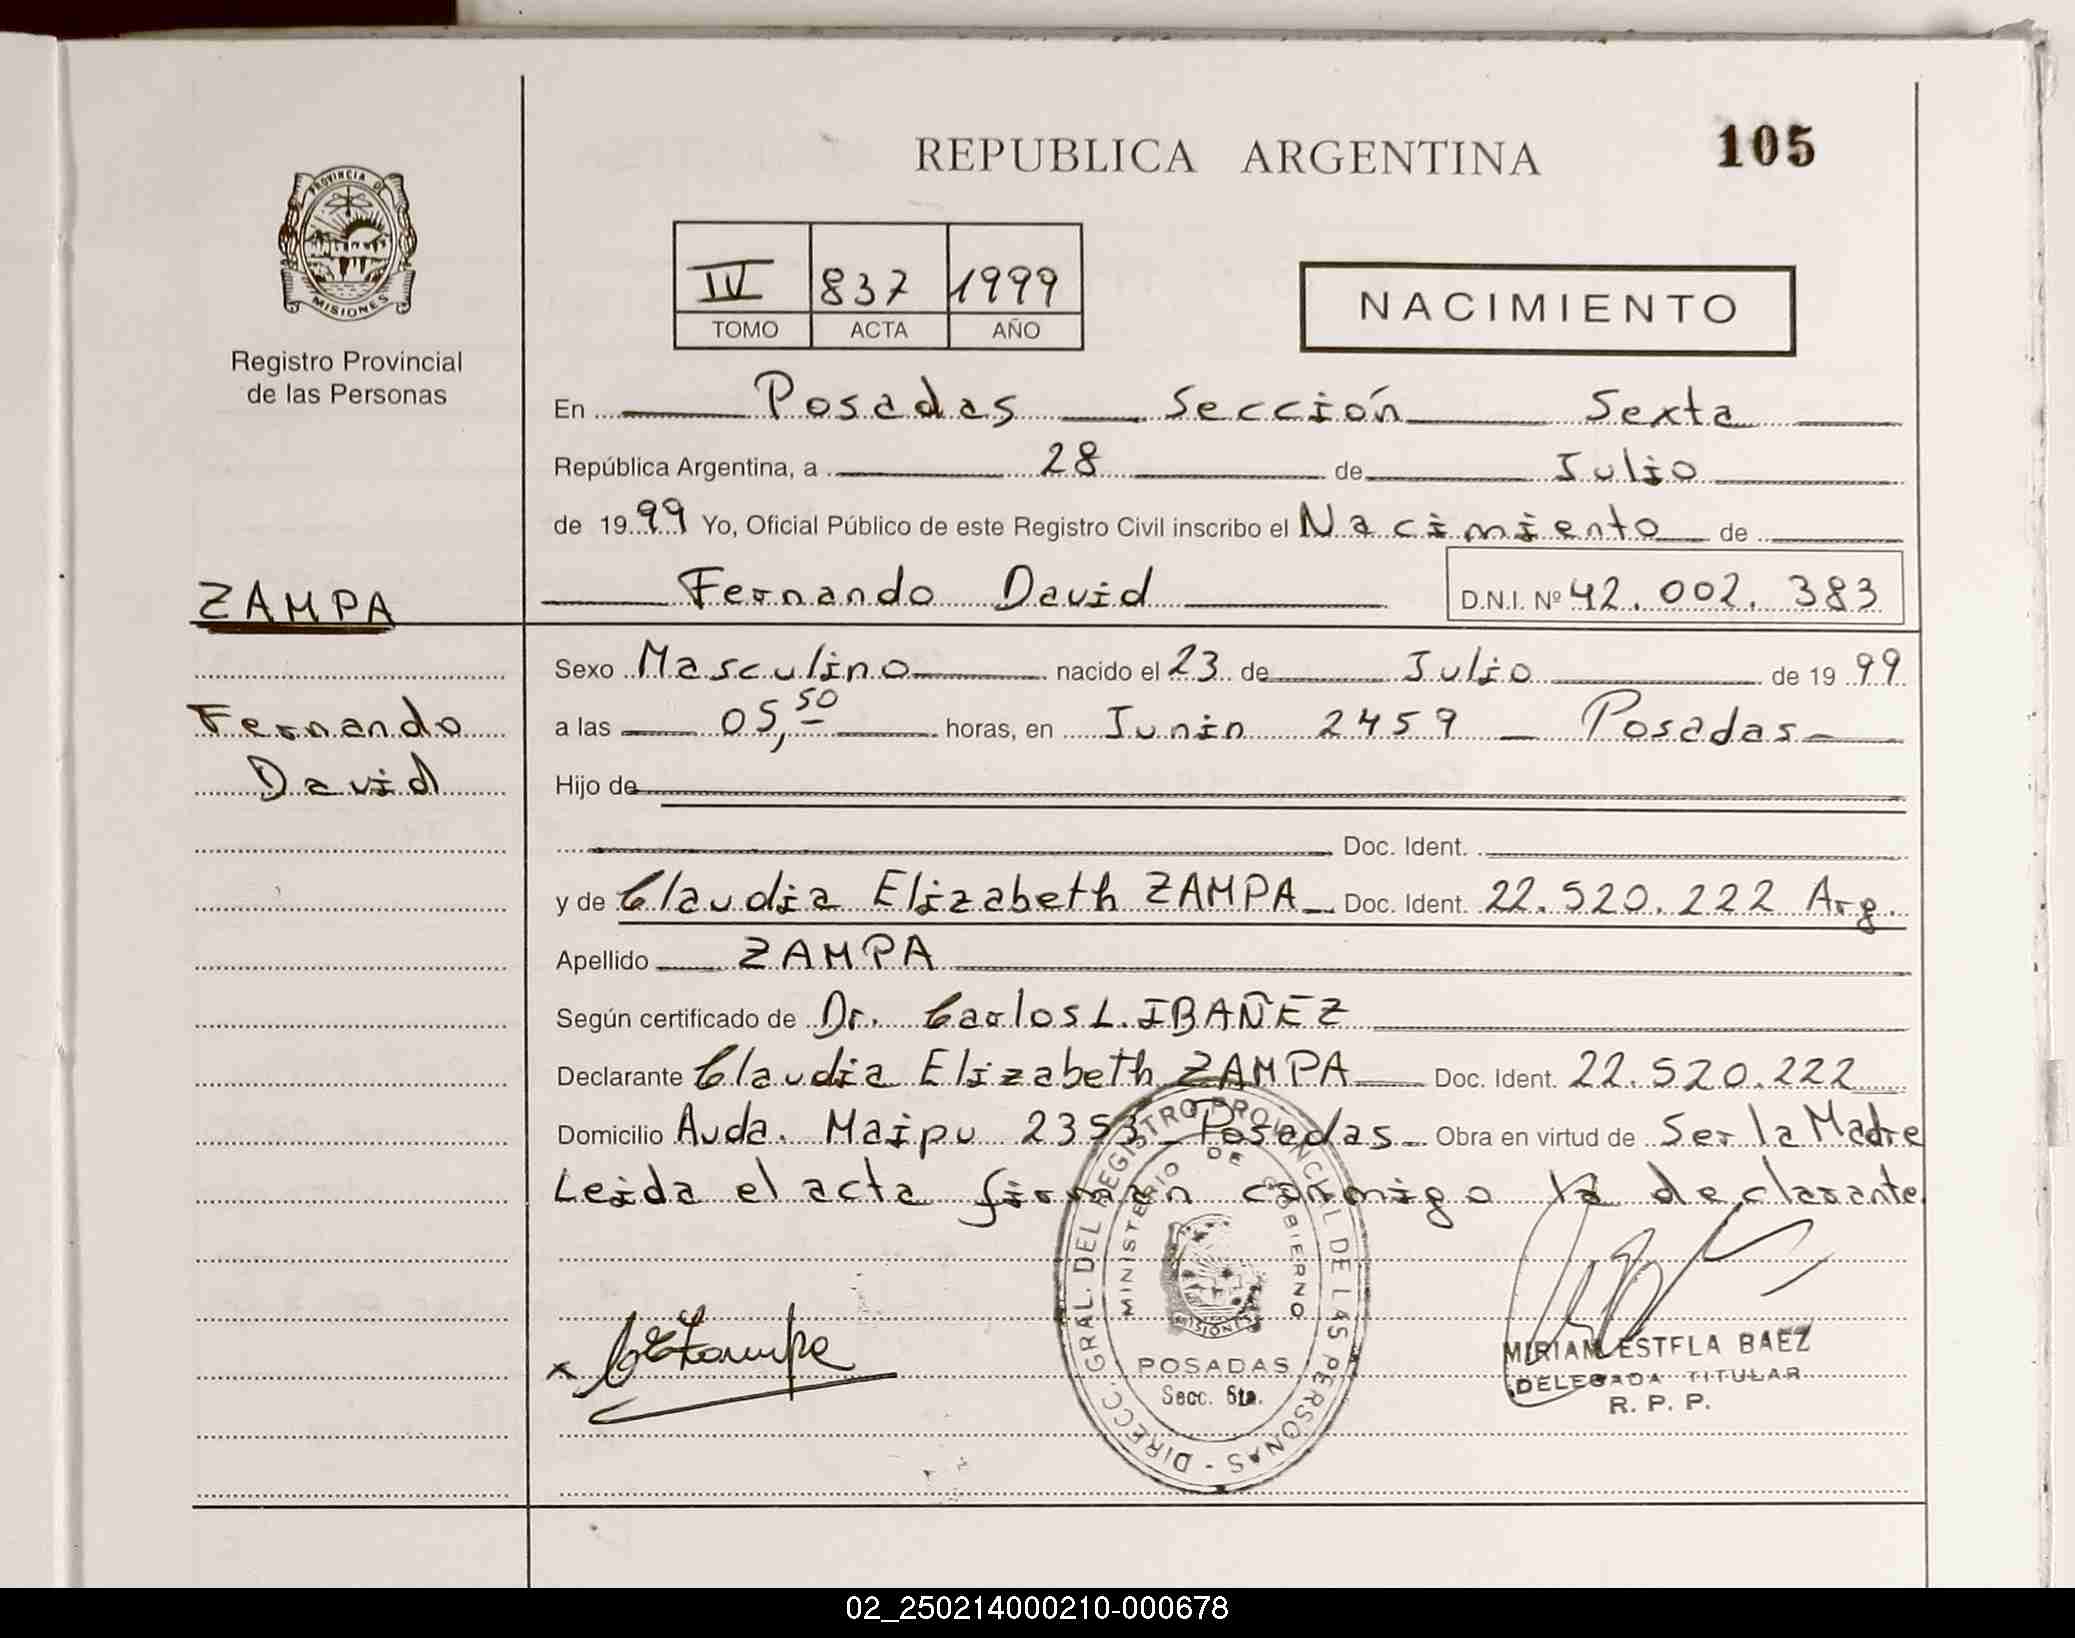 REPUBLICA ARGENTINA
105
PROVINCIA DE
MISIONES
Registro Provincial
de las Personas
IV 837 1999
TOMO ACTA AÑO
NACIMIENTO
En Posadas Sección Sexta
República Argentina, a 28 de Julio
de 1999 Yo, Oficial Público de este Registro Civil inscribo el Nacimiento de
ZAMPA
Fernando David D.N.I. Nº 42.002.383
Sexo Masculino nacido el 23 de Julio de 1999
Fernando
a las 05,50 horas, en Junin 2459 - Posadas
David
Hijo de
Doc. Ident.
y de Claudia Elizabeth ZAMPA Doc. Ident. 22.520.222 Arg.
Apellido ZAMPA
Según certificado de Dr. Carlos L. IBAÑEZ
Declarante Claudia Elizabeth ZAMPA Doc. Ident. 22.520.222
Domicilio Avda. Maipu 2353 - Posadas Obra en virtud de Ser la Madre
Leida el acta firman conmigo la declarante.
DIRECC. GRAL. DEL REGISTRO PROVINCIAL DE LAS PERSONAS -
MINISTERIO DE GOBIERNO
MISIONES
POSADAS
Secc. 6ta.
x CEZampa
MIRIAM ESTELA BAEZ
DELEGADA TITULAR
R. P. P.
02_250214000210-000678